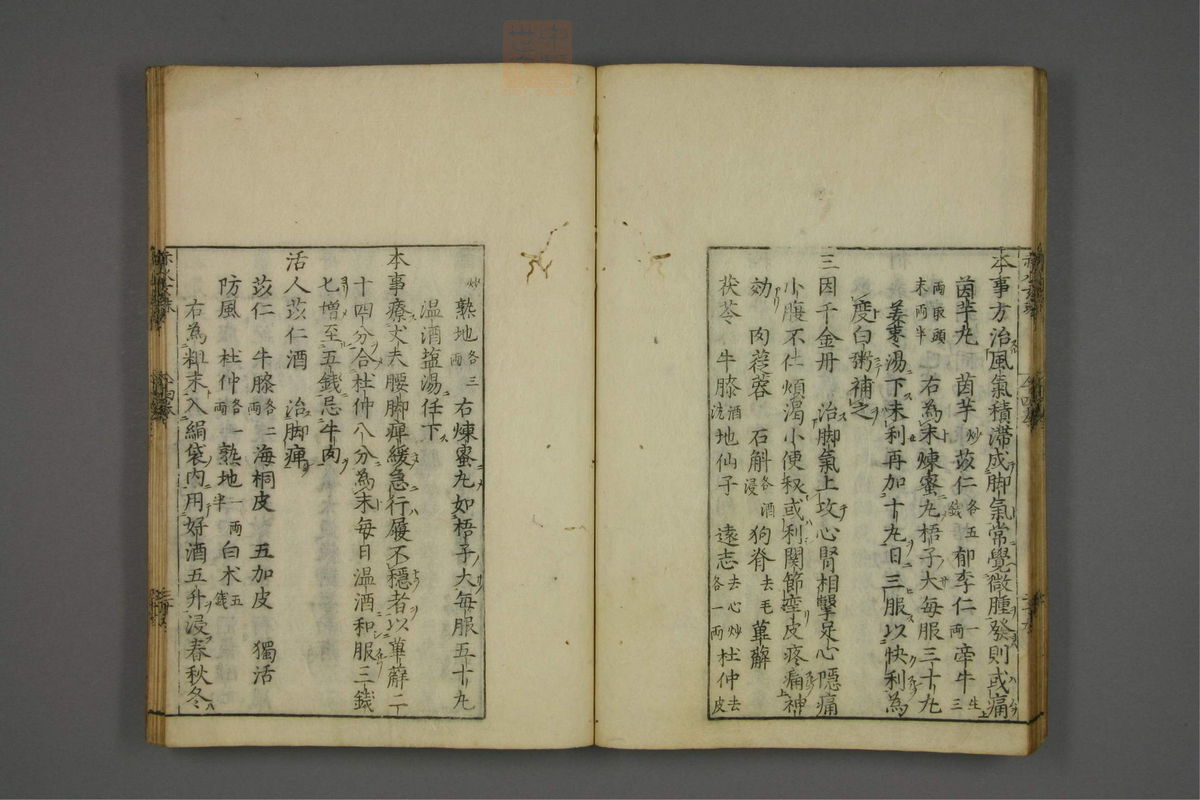 本事方治風氣積滯成脚氣常覺微腫發則或痛
茵芋丸 茵芋炒 苡仁各五錢 郁李仁一兩 牽牛生三
兩取頭末兩半 右為末煉蜜丸梧子大每服三十丸
姜棗湯下未利再加十丸日三服以快利為
度白粥補之
三因千金丹 治脚氣上攻心腎相擊足心隱痛
小腹不仁煩渴小便秘或利関節攣皮疼痛神
効 肉蓯蓉 石斛各酒浸 狗脊去毛 萆薢
茯苓 牛膝酒洗 地仙子 遠志去心炒各一兩 杜仲去皮
炒 熟地各三兩 右煉蜜丸如梧子大每服五十丸
温酒塩湯任下
本事療丈夫腰脚痺緩急行履不穩者以萆薢二
十四分合杜仲八分為末每日温酒和服三錢
七增至五錢忌牛肉
活人苡仁酒 治脚痺
苡仁 牛膝各二兩 海桐皮 五加皮 獨活
防風 杜仲各一兩 熟地一兩半 白术五錢
右為粗末入絹袋内用好酒五升浸春秋冬